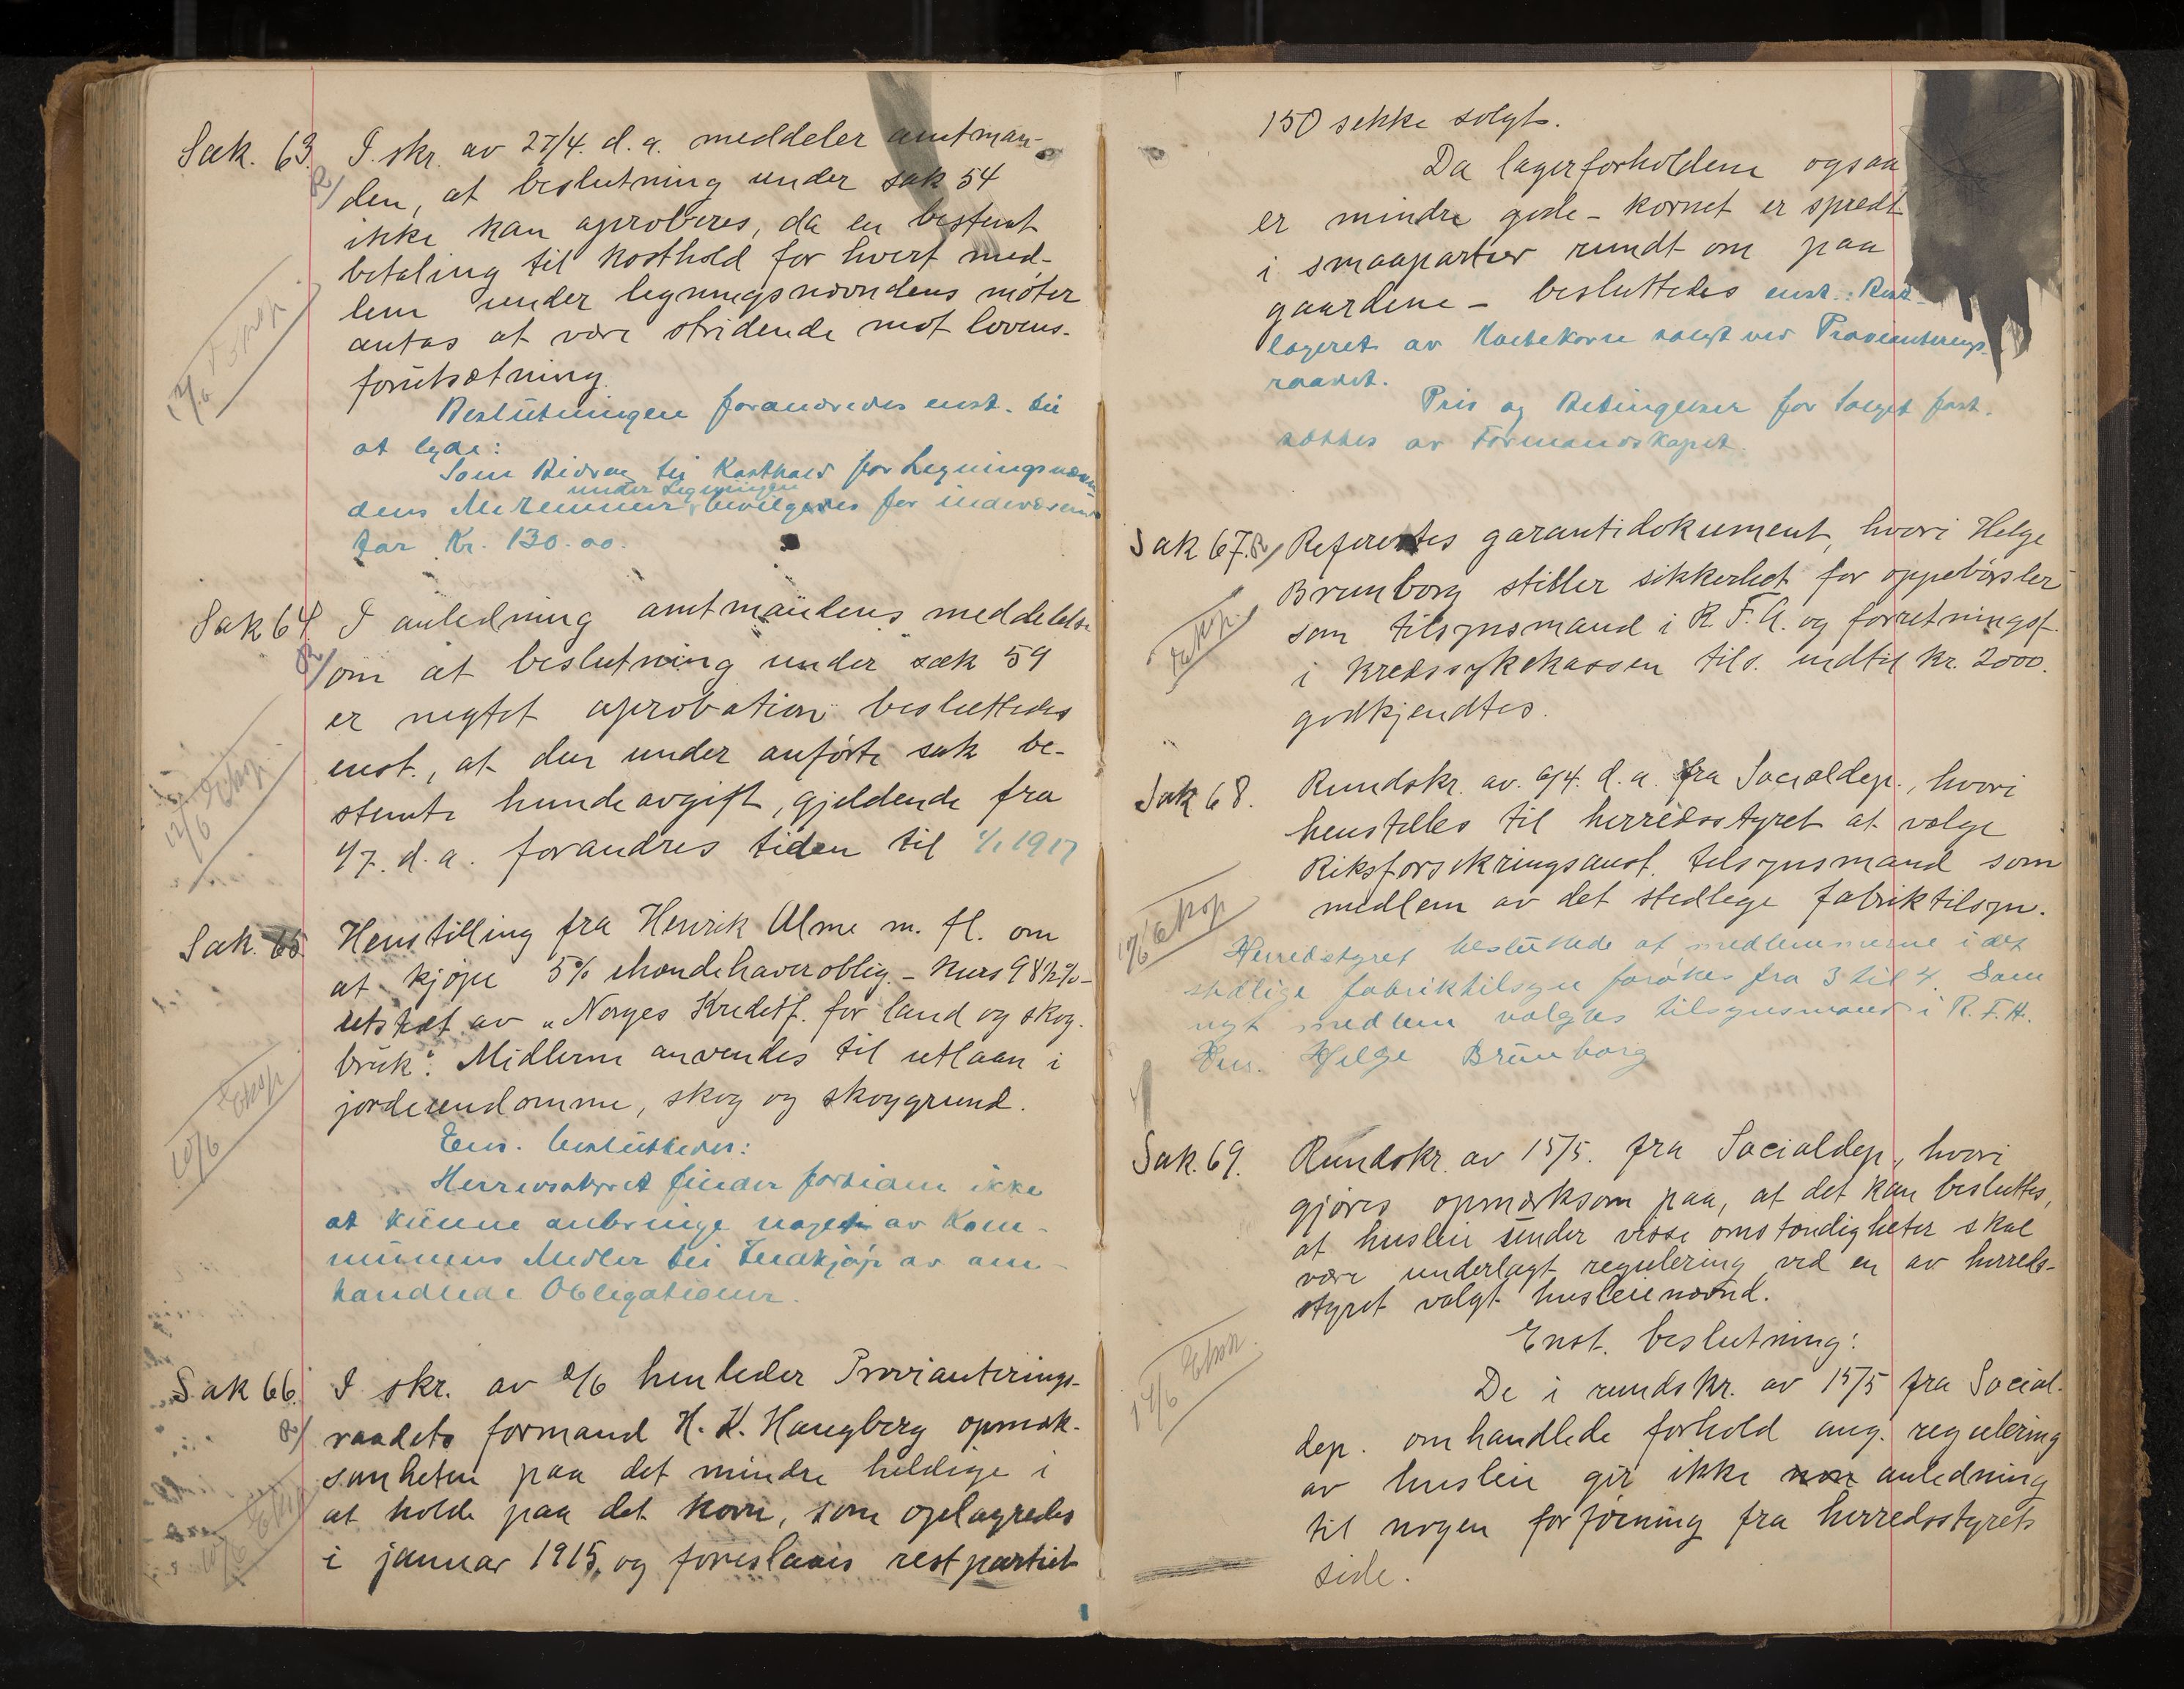 Sak. 63. I skr. av 27/4. d. a. meddeler amtman-
den, at beslutning under sak 54
ikke kan aproberes, da en bestemt
betaling til kosthold for hvert med-
lem under ligningsnævndens møter
antas at være stridende mot lovens
forutsætning.
Beslutningen forandredes enst. til
at lyde:
Som Bidrag til Kosthold for Ligningsnævn-
under Ligningen
dens Medlemmer bevilgedes for indeværende
aar Kr. 130.00.
Sak 64. I anledning amtmandens meddelelse
om at beslutning under sak 59
er negtet aprobation besluttedes
enst., at den under anførte sak be-
stemte hundeavgift, gjeldende fra
1/7. d. a. forandres tiden til 1/1 1917
Sak. 65. Henstilling fra Henrik Alme m. fl. om
at kjøpe 5% ihændehaveroblig. - kurs 98½% -
utstedt av "Norges Kreditf. for land og skog-
bruk". Midlerne anvendes til utlaan i
jordeiendomme, skog og skoggrund.
Ens. besluttedes:
Herredsstyret finder fortiden ikke
at kunne anbringe noget av Kom-
munens Midler til Indkjøp av om-
handlede Obligationer.
Sak 66. I skr. av 2/6 henleder Provianterings-
raadets formand H. K. Haugberg opmerk-
somheten paa det mindre heldige i
at holde paa det korn, som oplagredes
i januar 1915, og foreslaaes restpartiet
150 sekke solgt.
Da lagerforholdene ogsaa
er mindre gode - kornet er spredt
i smaapartier rundt om paa
gaardene - besluttedes enst.: Rest-
lageret av Matekorn solgt ved Provianterings-
raadet.
Pris og Betingelser for Salget fast-
sættes av Formandskapet.
Sak 67. Referertes garantidokument, hvori Helge
Brunborg stiller sikkerhet for oppebørsler
som tilsynsmand i R. F. A. og forretningsf.
i Kredssykekassen tils. indtil kr. 2000.
godkjendtes.
Sak 68. Rundskr. av 9/4. d. a. fra Socialdep., hvori
henstilles til herredsstyret at vælge
Riksforsikringsanst. tilsynsmand som
medlem av det stedlege fabriktilsyn.
Herredstyret besluttede at medlemmerne i det
stedlige fabriktilsyn forøkes fra 3 til 4. Som
nyt medlem valgtes tilsynsmand i R. F. A.
Hr. Helge Brunborg
Sak. 69. Rundskr. av 15/5. fra Socialdep., hvori
gjøres opmerksom paa, at det kan besluttes,
at husleie under visse omstændigheter skal
være underlagt regulering ved en av herreds-
styret valgt husleienævnd.
Enst. beslutning:
De i rundskr. av 15/5 fra Social-
dep. omhandlede forhold ang. regulering
av husleie gir ikke anledning
til nogen forføining fra herredsstyrets
side.